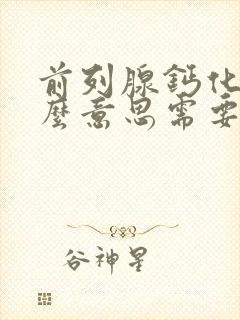 前列腺鈣化
麼意思需要
谷神星